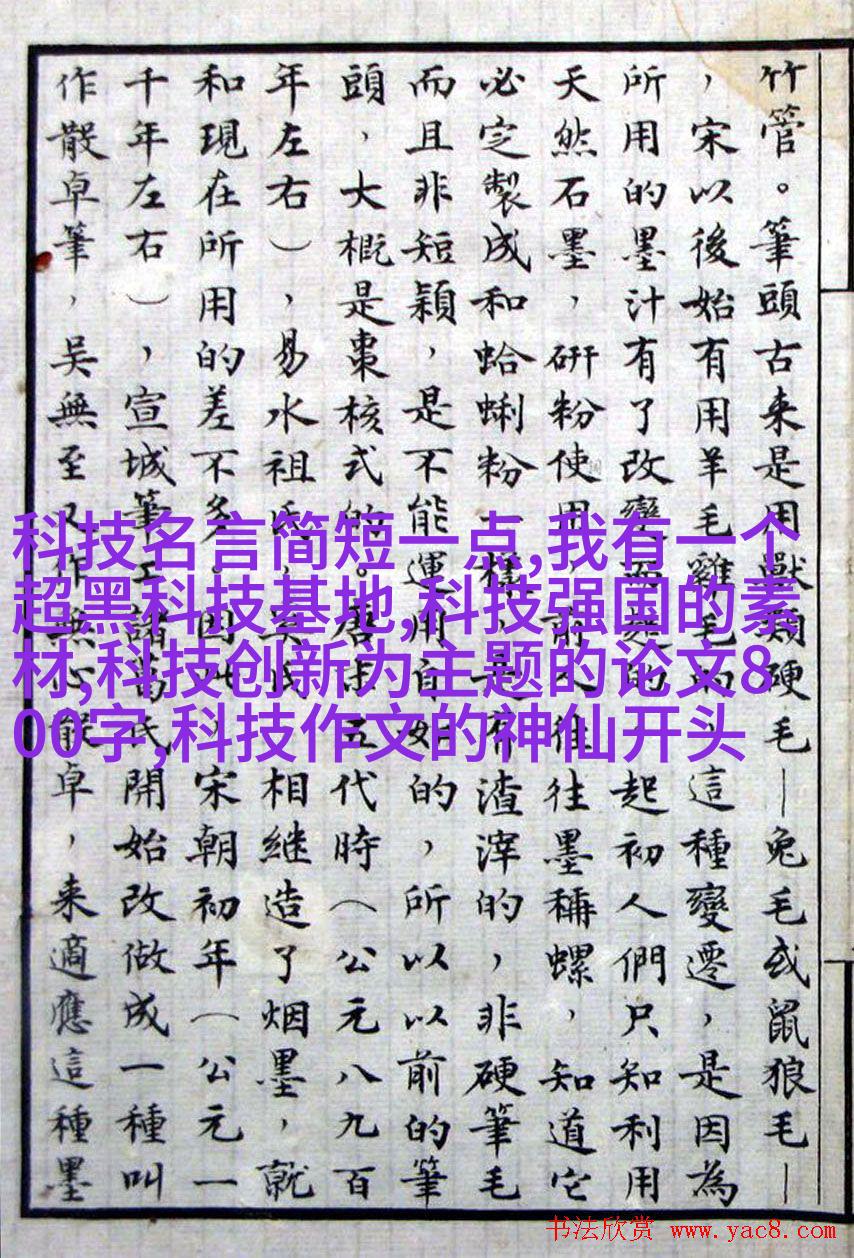 竹管。筆頭古来是用獸類硬毛—兔毛或鼠狼毛—
，宋以後始有用羊毛雞毛的，這種變遷，是因為
所用的墨汁有了改變而的起初人們只知利用
天然石墨，研粉使用，前人往往墨稱螺，知道它
必定製成和蛤蜊粉一樣，是有渣滓的，非硬筆毛
而且非短穎，是不能運用自如的，所以以前的筆
頭，大概是棗核式的。唐末五代時（公元八九百
年左右），易水祖氏、奚氏，相繼造了烟墨，就
和現在所用的差不多。因此，宋朝初年（公元一
千年左右），宣城筆工諸葛氏開始改做成一種叫
作散卓筆，吳無至又作無心散卓，来適應這種墨
科技名言简短一点,我有一个
超黑科技基地,科技强国的素
材,科技创新为主题的论文8
00字,科技作文的神仙开头
书法欣赏 www.yac8.com